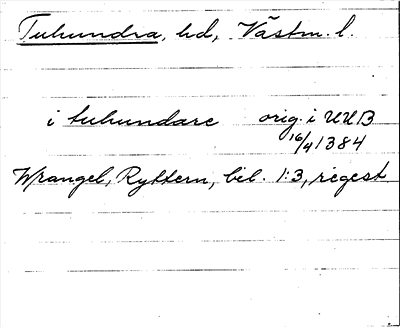 Tuhundra, hd, Västm. l.
i tuhundare orig. i UUB
16/4 1384
Wrangel, Ryttern, bil. 1:3, regest